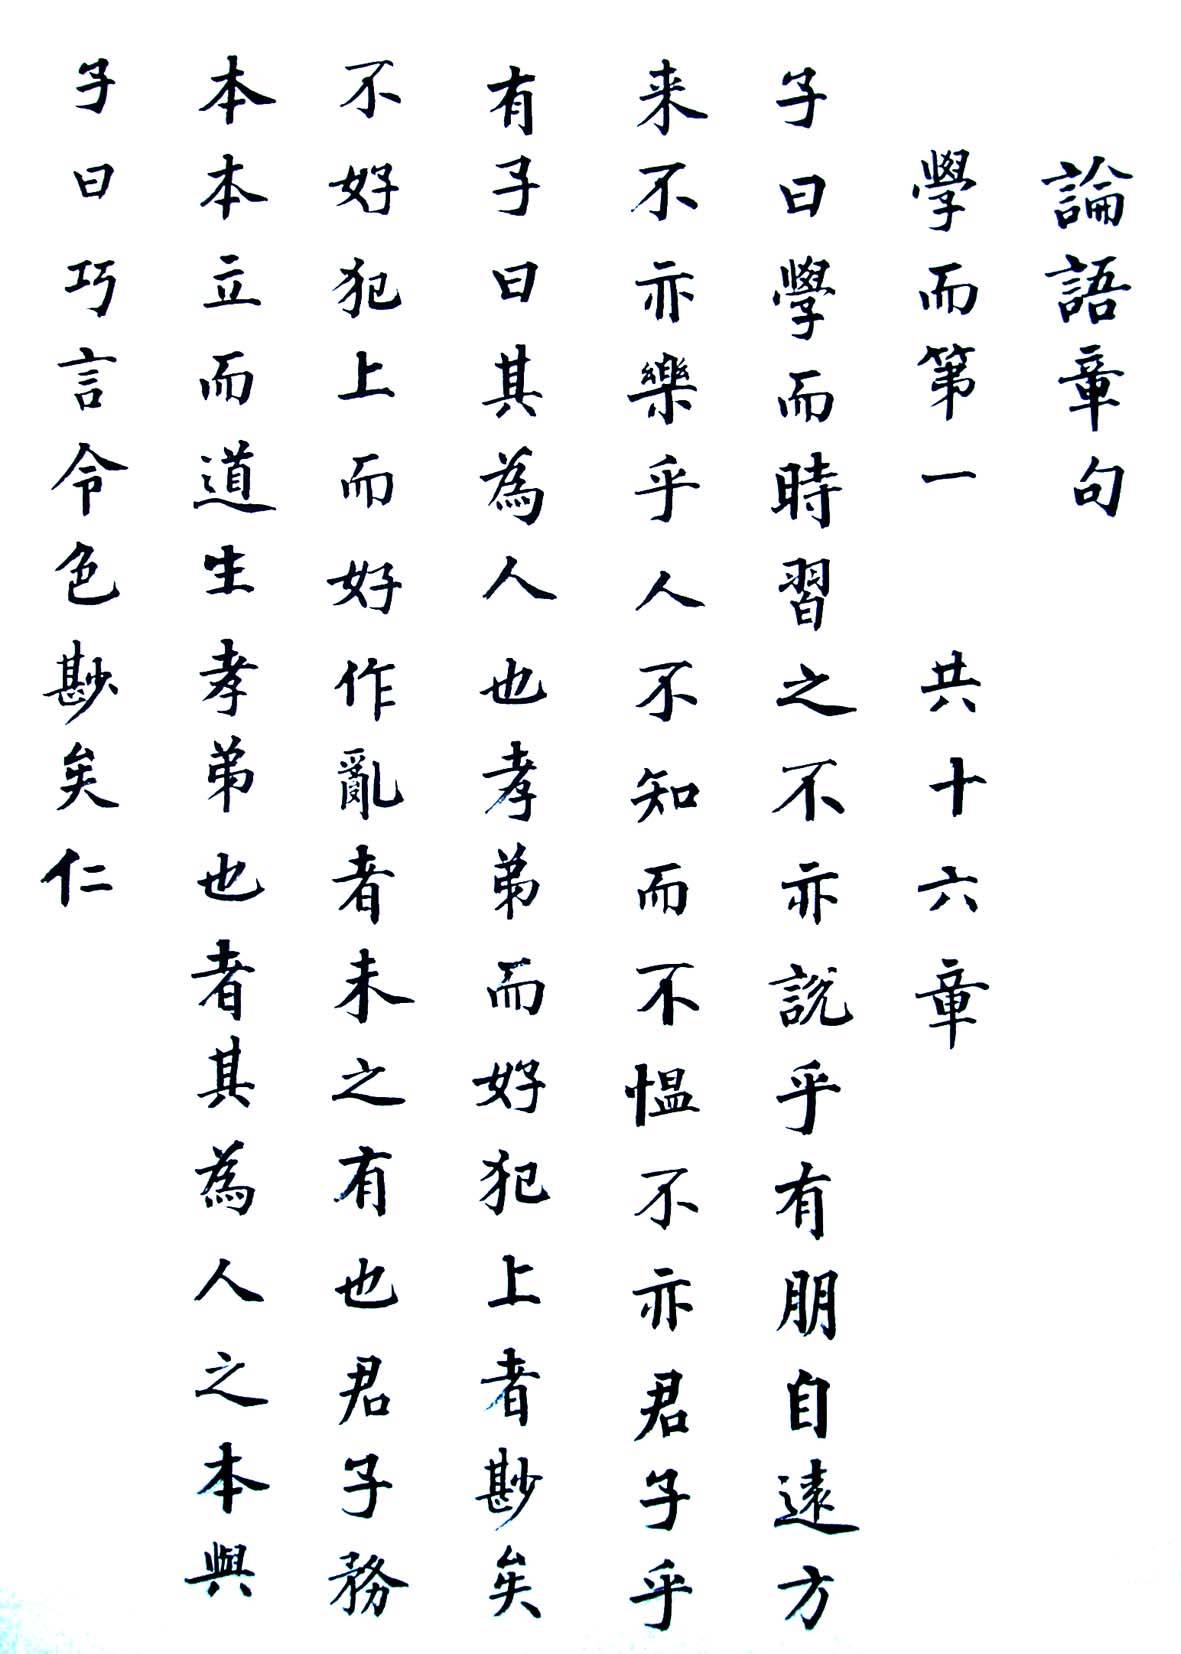 論語章句
學而第一　共十六章
子曰學而時習之不亦說乎有朋自遠方
来不亦樂乎人不知而不愠不亦君子乎
有子曰其為人也孝弟而好犯上者尠矣
不好犯上而好作亂者未之有也君子務
本本立而道生孝弟也者其為人之本與
子曰巧言令色尠矣仁